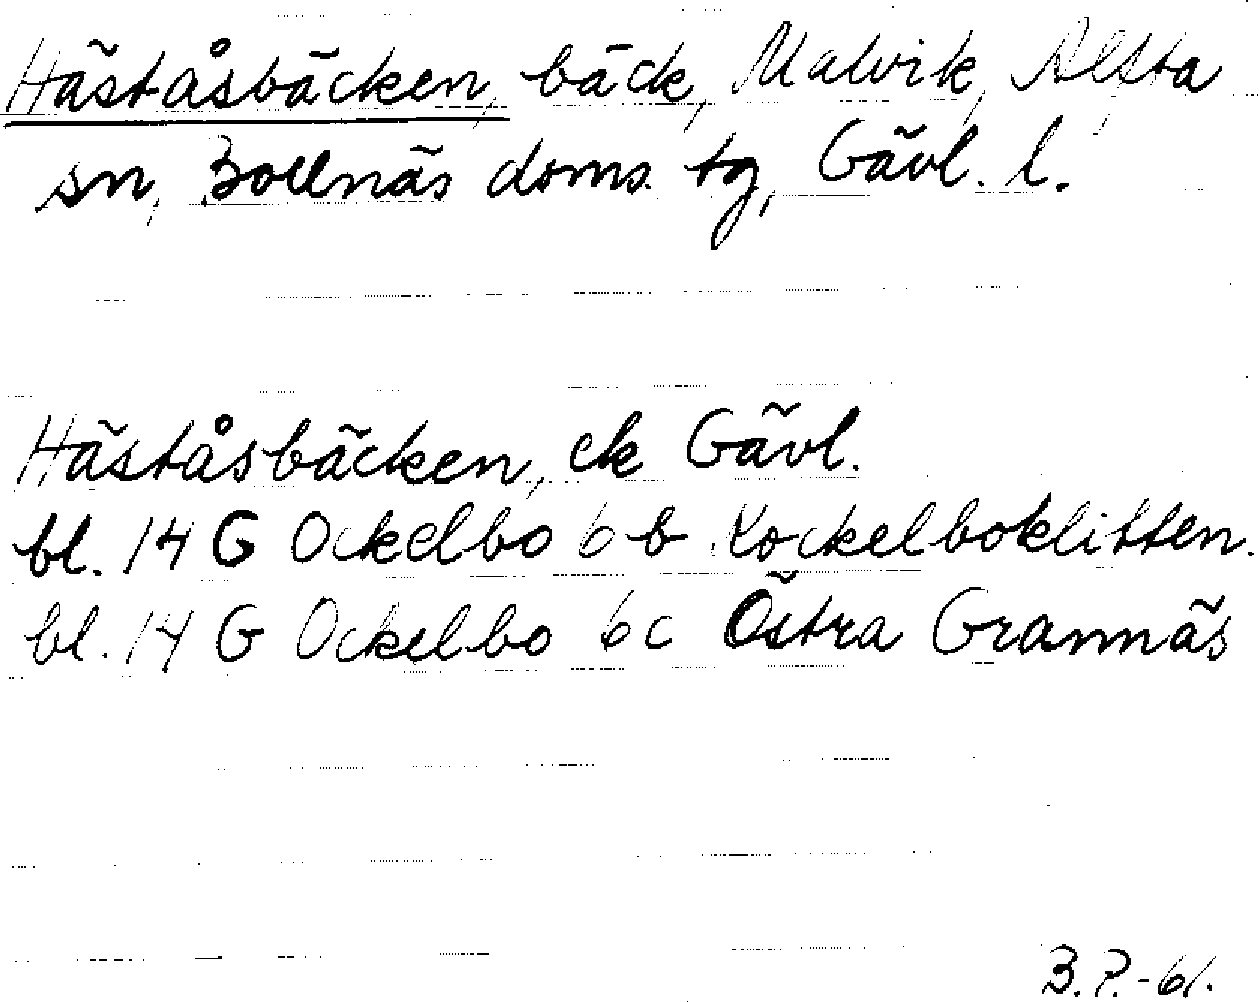 Häståsbäcken, bäck, Malvik, Alfta
sn, Bollnäs doms. tg, Gävl. l.
Häståsbäcken, ek Gävl.
bl. 14 G Ockelbo 6 b Kockelboklitten.
bl. 14 G Ockelbo 6c Östra Grannäs
B.P.-61.